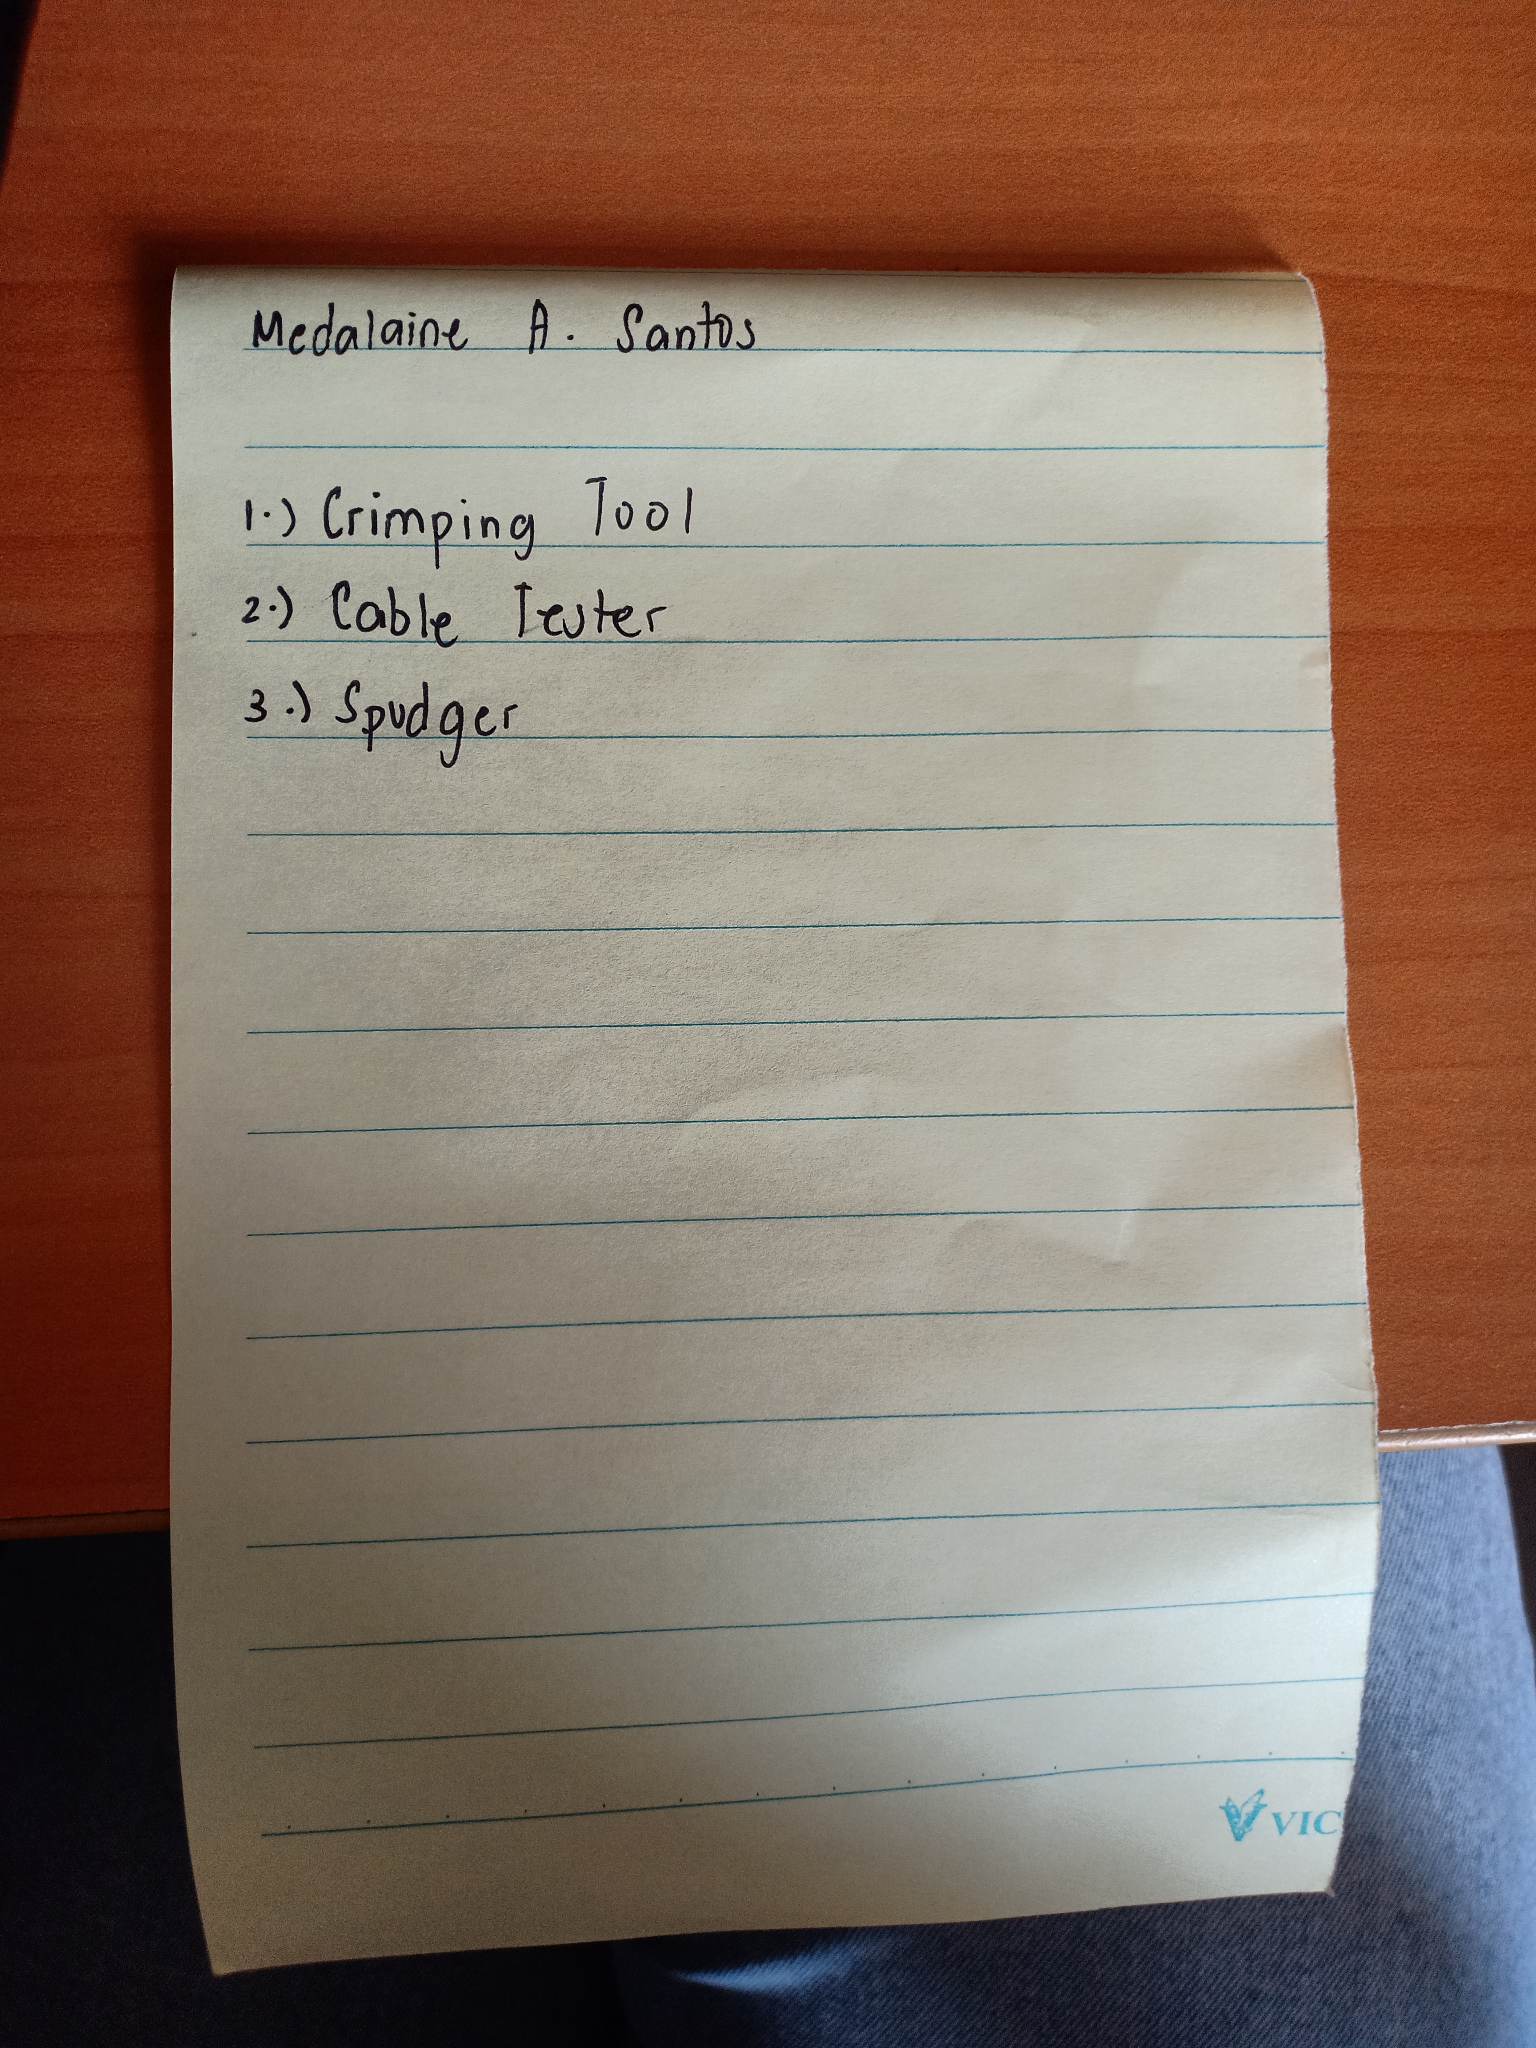 Medalaine A. Santos
1.) Crimping Tool
2.) Cable Tester
3.) Spudger
VIC